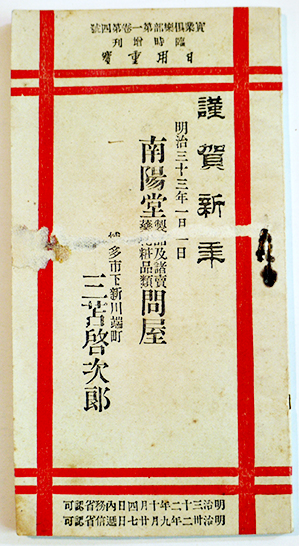 實業俱樂部第一卷第四號
臨時增刊
日用重寶
謹賀新年
明治三十三年一月一日
南陽堂製品及諸賣藥粧品類問屋
多市下新川端町
三苫啓次郎
明治三十二年十月四日内務省認可
明治卅二年九月廿七日遞信省認可